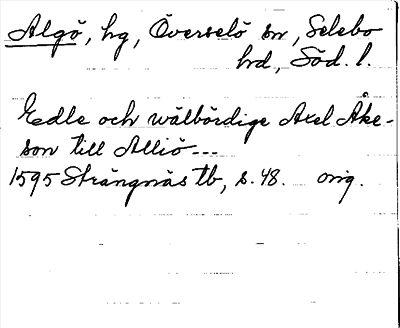 Algö, hg, Överselö sn, Selebo
hd, Söd. l.
Edle och wälbördige Axel Åke-
son till Alliö---
1595 Strängnäs tb, s. 48. orig.